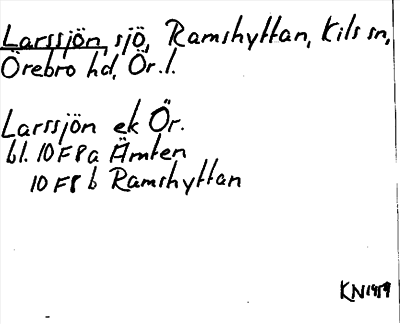 Larssjön, sjö, Ramshyttan, Kils sn,
Örebro hd, Ör. l.
Larssjön ek Ör.
bl. 10F8a Ämten
10F8b Ramshyttan
KN1959